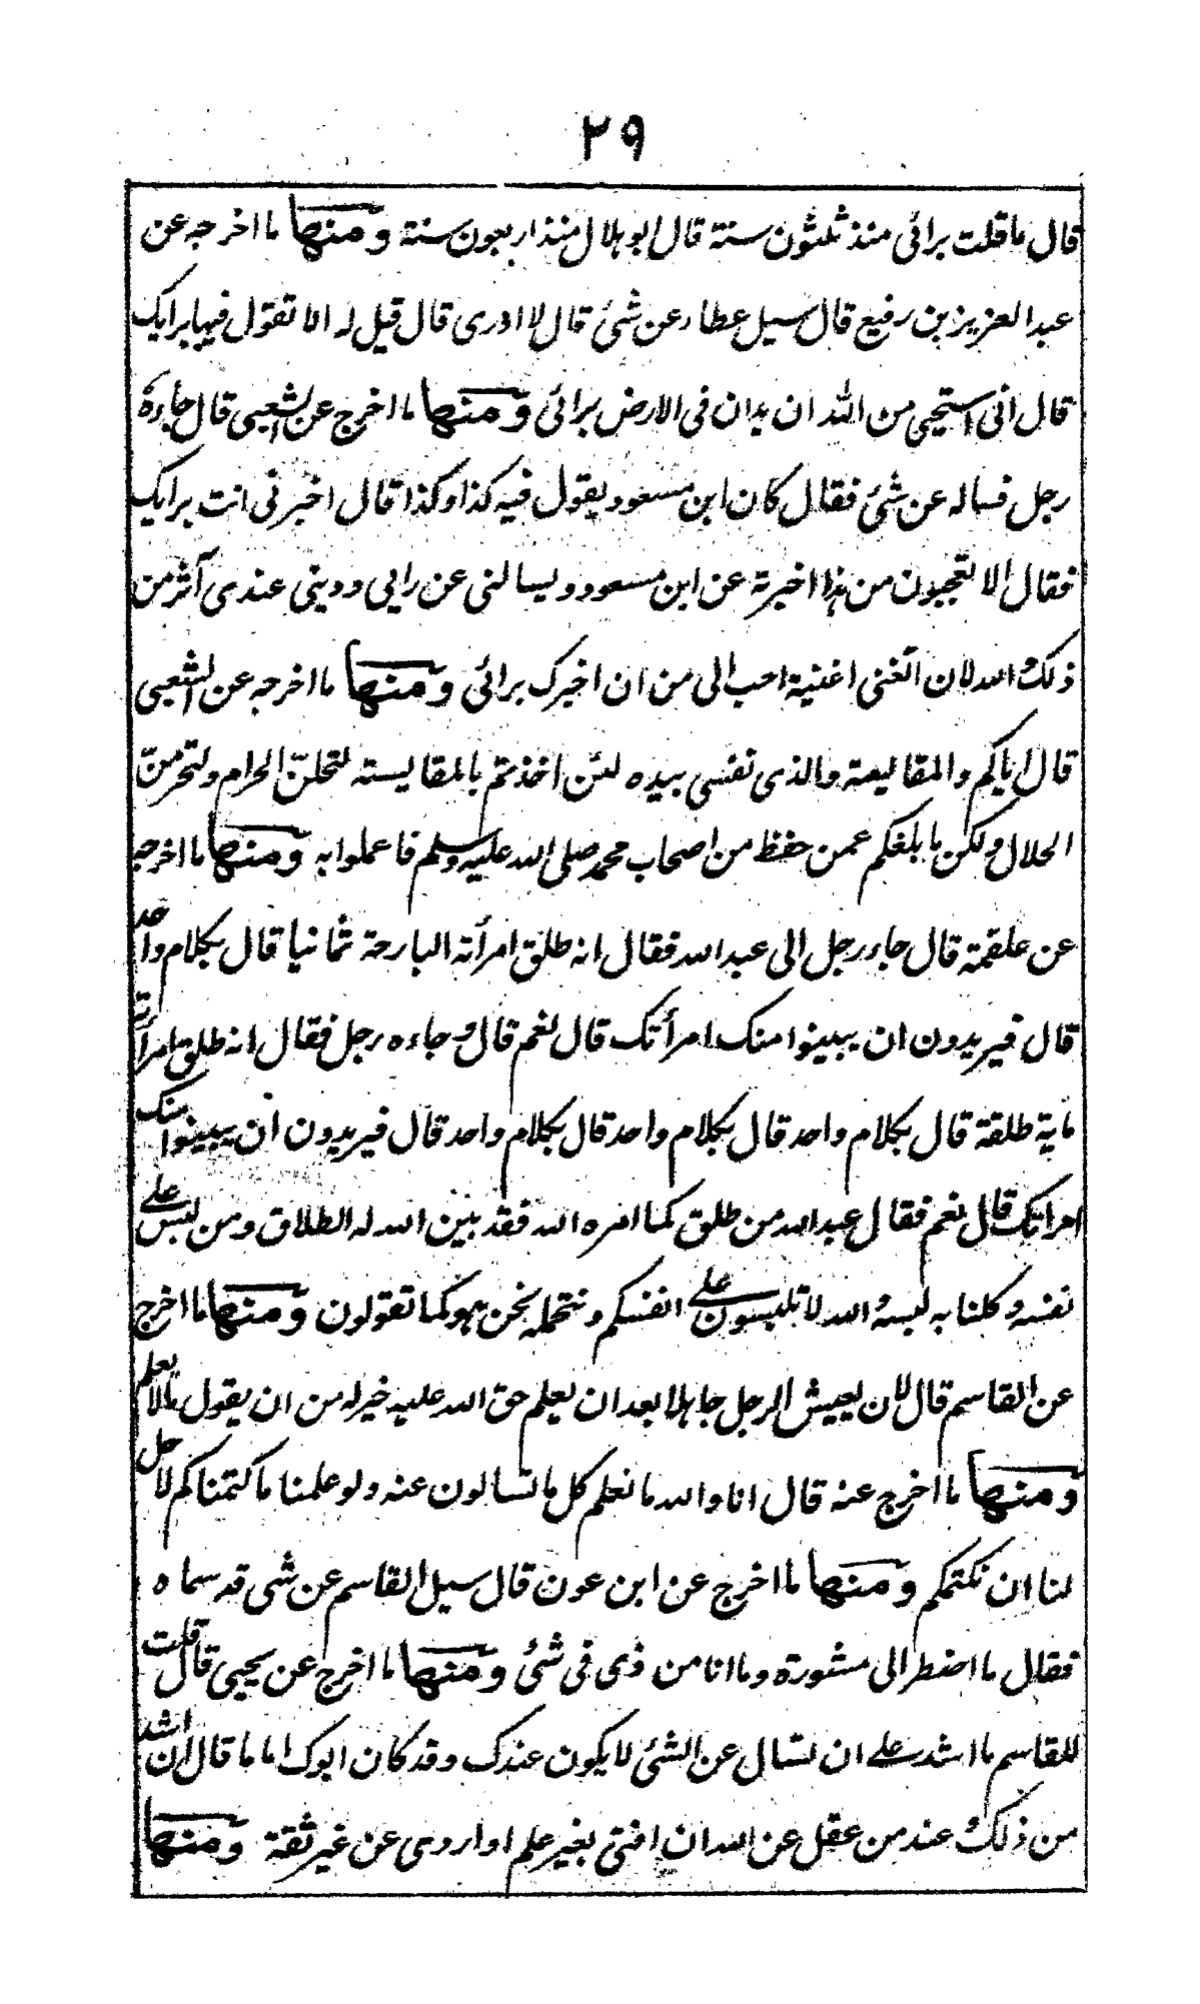 ٢٩
قال ما قلت برائى منذ ثلثون سنة قال ابو هلال منذ اربعون سنة ومنها ما اخرجه عن
عبد العزيز بن رفيع قال سيل عطاء عن شئ قال لا ادرى قال قيل له الا تقول فيها برايك
قال انى استحيى من الله ان يدان فى الارض برائى ومنها ما اخرج عن الشعبى قال جاءه
رجل فساله عن شئ فقال كان ابن مسعود يقول فيه كذا وكذا قال اخبرنى انت برايك
فقال الا تعجبون من هذا اخبرته عن ابن مسعود ويسالنى عن رايى ودينى عندى آثر من
ذلك والله لان اتغنى اغنية احب الى من ان اخبرك برائى ومنها ما اخرجه عن الشعبى
قال اياكم والمقايسة والذى نفسى بيده لئن اخذتم بالمقايسة لتحلنّ الحرام ولتحرمنّ
الحلال ولكن ما بلغكم عمن حفظ من اصحاب محمد صلى الله عليه وسلم فاعملوا به ومنها ما اخرجه
عن علقمة قال جاء رجل الى عبد الله فقال انه طلق امرأته البارحة ثمانيا قال بكلام واحد
قال فيريدون ان يبينوا منك امرأتك قال نعم قال وجاءه رجل فقال انه طلق امرأته
ماية طلقة قال بكلام واحد قال بكلام واحد قال بكلام واحد قال فيريدون ان يبينوا منك
امراتك قال نعم فقال عبد الله من طلق كما امره الله فقد بين الله له الطلاق ومن لبس على
نفسه وكلنا به لبسه والله لا تلبسون على انفسكم ونتحمله نحن هو كما تقولون ومنها ما اخرج
عن القاسم قال لان يعيش الرجل جاهلا بعد ان يعلم حق الله عليه خير له من ان يقول ما لا يعلم
ومنها ما اخرج عنه قال انا والله ما نعلم كل ما تسالون عنه ولو علمنا ما كتمناكم لا حل
لنا ان نكتمكم ومنها ما اخرج عن ابن عون قال سيل القاسم عن شى قد سماه
فقال ما اضطر الى مشورة وما انا من ذى فى شئ ومنها ما اخرج عن يحيى قال قلت
للقاسم ما اشد على ان تسال عن الشئ لا يكون عندك وقد كان ابوك اماما قال ان اشد
من ذلك عند من عقل عن الله ان افتى بغير علم او اروى عن غير ثقة ومنها